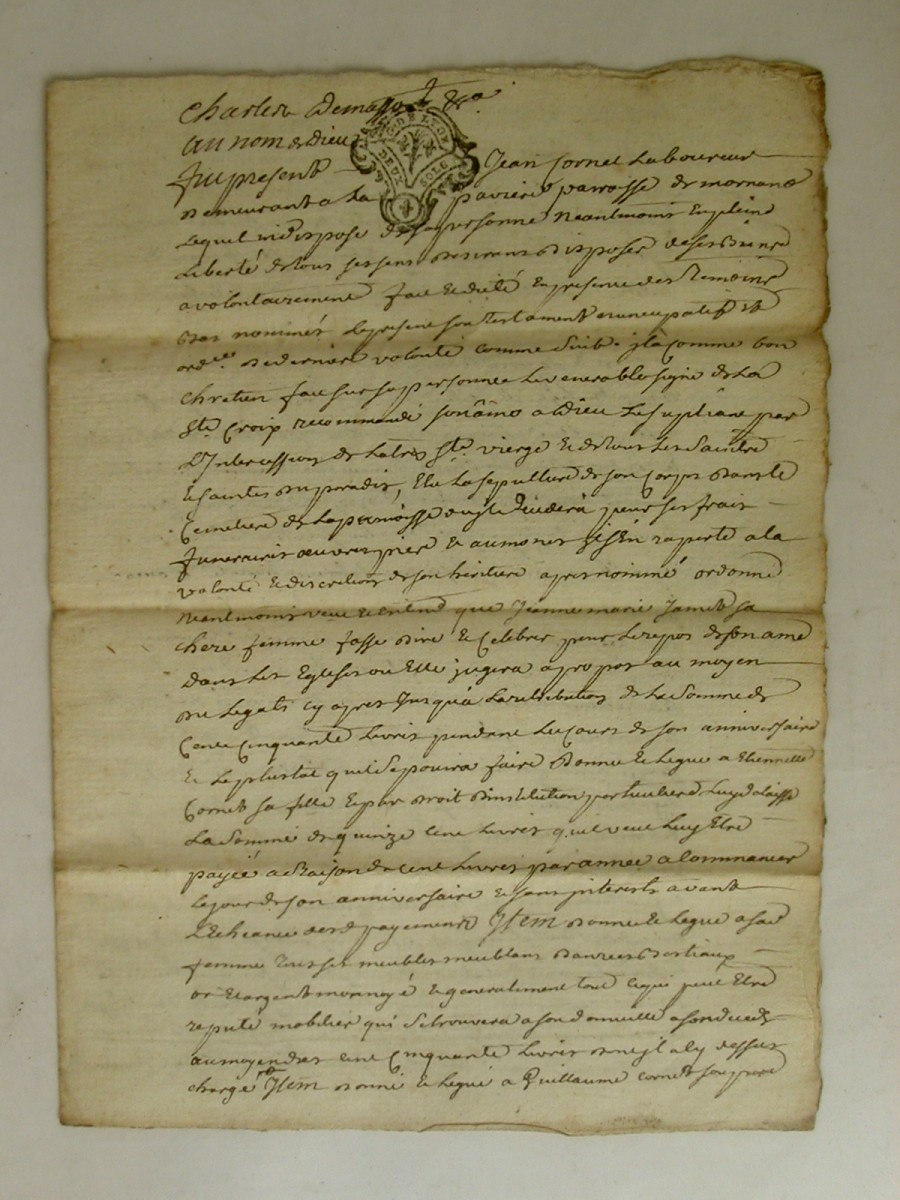 Charles Demasso &ca
Au nom de Dieu
G. DE LYON
DEUX SOLS
fut present Jean Cornet Laboureur
demeurant a La paviere parroisse de mornand
Lequel indispose de sa personne Neantmoins En pleine
Liberté de tous ses sens desirant disposer de ses Biens
a volontairement fait et dicté En presence des temoins
bas nommés Le present son testament nuncupatif et
ordce de derniere volonté comme suit. jla comme bon
chretien fait sur sa personne Le venerable signe de La
Ste Croix recommandé son âme a Dieu Le supliant par
L'Intercession de La tres Ste vierge et de tous Les saints
et saintes du paradis, Elit La sepulture de son Corps dans le
Cemetiere de La parroisse ou il decedera pour ses frais
funerraires œuvres pies et aumones il s'En raporte a la
volonté et discretion de son heritiere apres nommé ordonne
Neantmoins veut et entend que Jeanne marie Jamet sa
chere femme fasse dire et Celebrer pour Le repos de son ame
Dans Les Eglises ou Elle jugera a propos au moyen
du Legats cy apres Jusqu'a La retribution de La somme de
Cent Cinquante Livres pendant Le cours de son anniversaire
et Le plustot que il se pourra faire Donne et Legue a Etiennette
Cornet sa fille et par droit d'institution particuliere Luy delaisse
La somme de quinze Cent Livres qu'il veut Luy Etre
payée a Raison de Cent Livres par année a Commancer
Le jour de son anniversaire et sans interests avant
L'Echeance des d payements Item Donne et Legue a sa d
femme tous ses meubles meublans danrées Bestiaux
or et argent monnoyé et generalement tout Ce qui peut Etre
reputé mobilier qui se trouvera a son domicille a son deceds
au moyen des Cent Cinquante Livres dont il a Cy dessus
chargé Item donne et Legue a Guillaume Cornet son pere